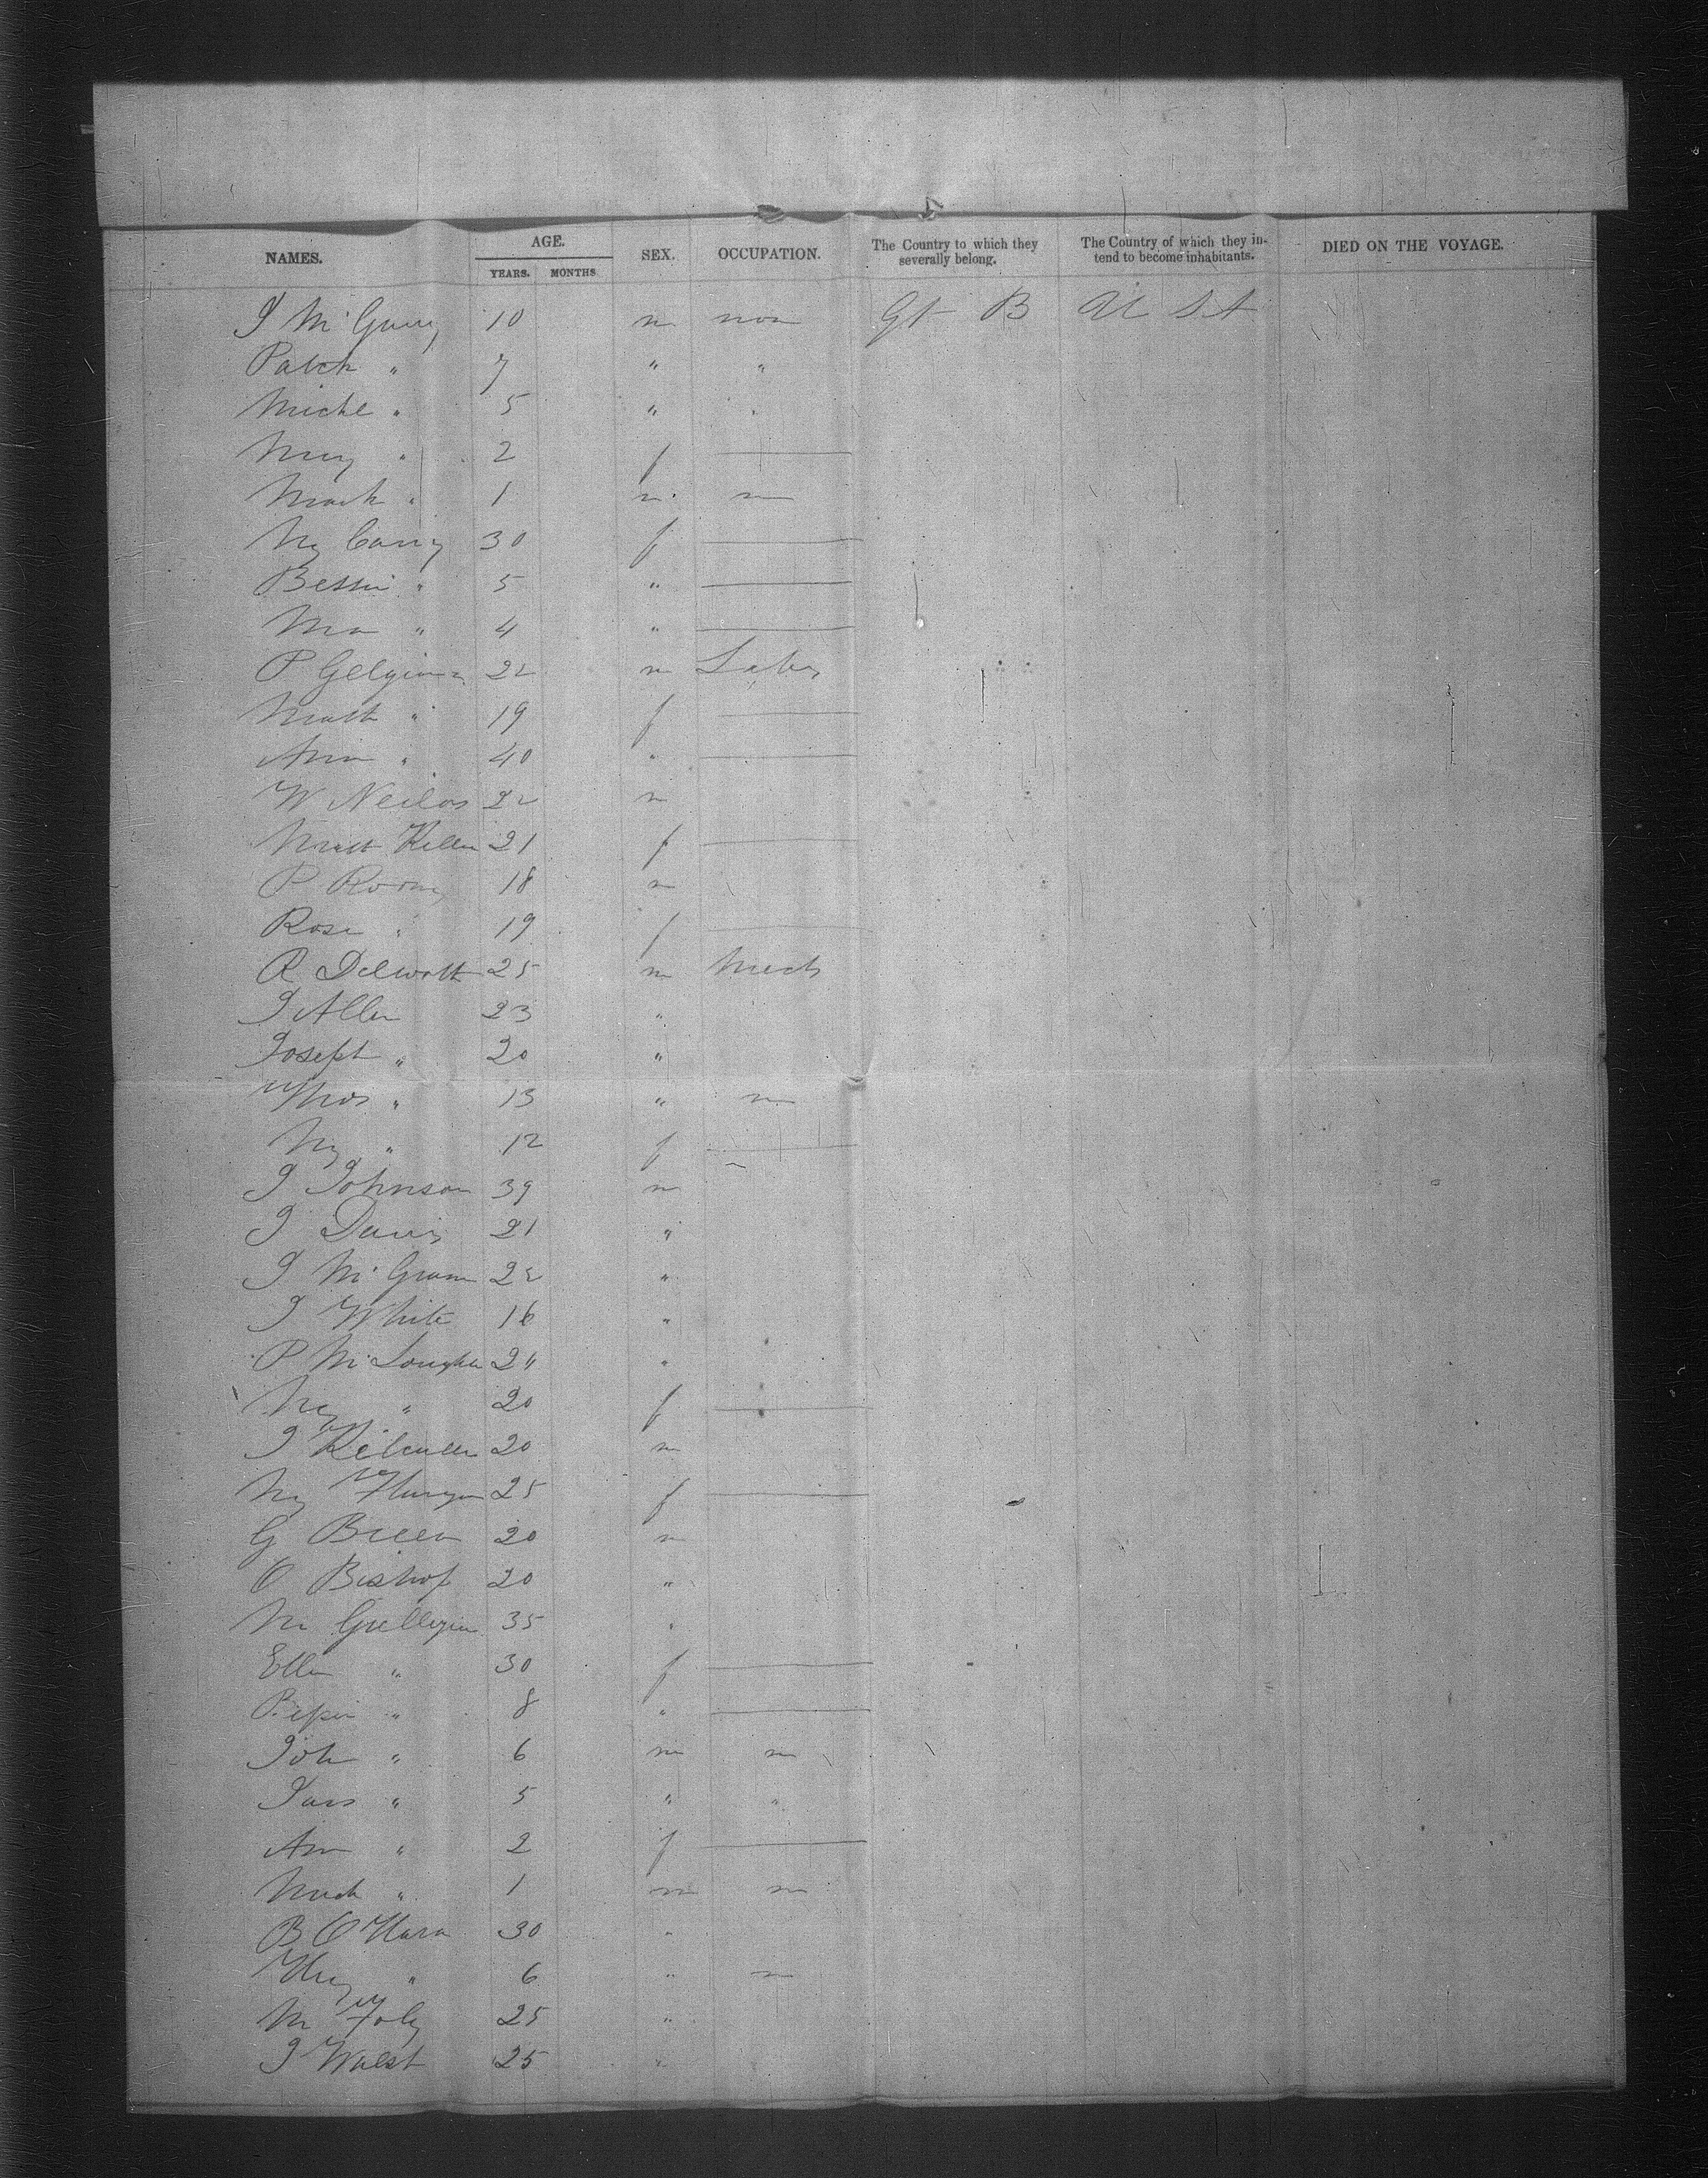 NAMES. AGE. YEARS. MONTHS SEX. OCCUPATION. The Country to which they severally belong. The Country of which they intend to become inhabitants. DIED ON THE VOYAGE.
J Mc 10 m non Gt B U St
Patck " 7 " "
Michl " 5 " "
Mary " 2 f
Mack " 1 m m
My Carry 30 f
Bessie " 5 "
Ma " 4 "
P 22 m Labr
" 19 f
Ann " 40 "
W Neilos 22 m
Kellen 21 f
P Roony 18 m
Rose " 19 f
R Delwott 25 m Mech
J Allen 23 "
Joseph " 20 "
Thos " 13 " m
My " 12 f
J Johnson 39 m
J Davis 21 "
J Mc 22 "
J White 16 "
P McLoughn 24 "
My " 20 f
J 20 m
My 25 f
G Breen 20 m
O Bishop 20 "
M Gillegin 35 "
Ellen " 30 f
" 8 "
Joh " 6 m m
" 5 " "
Ann " 2 f
Mich " 1 m m
B O'Hara 30 "
" 6 " m
M Foly 25 "
J Walsh 25 "